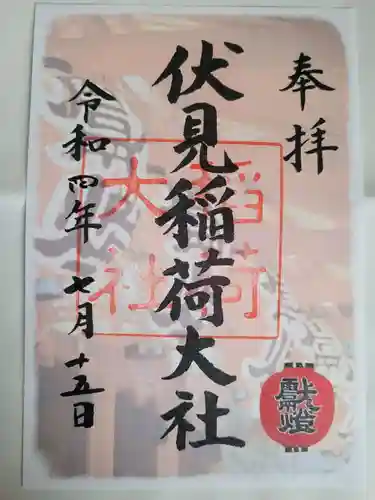 奉拝
伏見稲荷大社
稲荷
大社
令和四年七月十五日
献燈